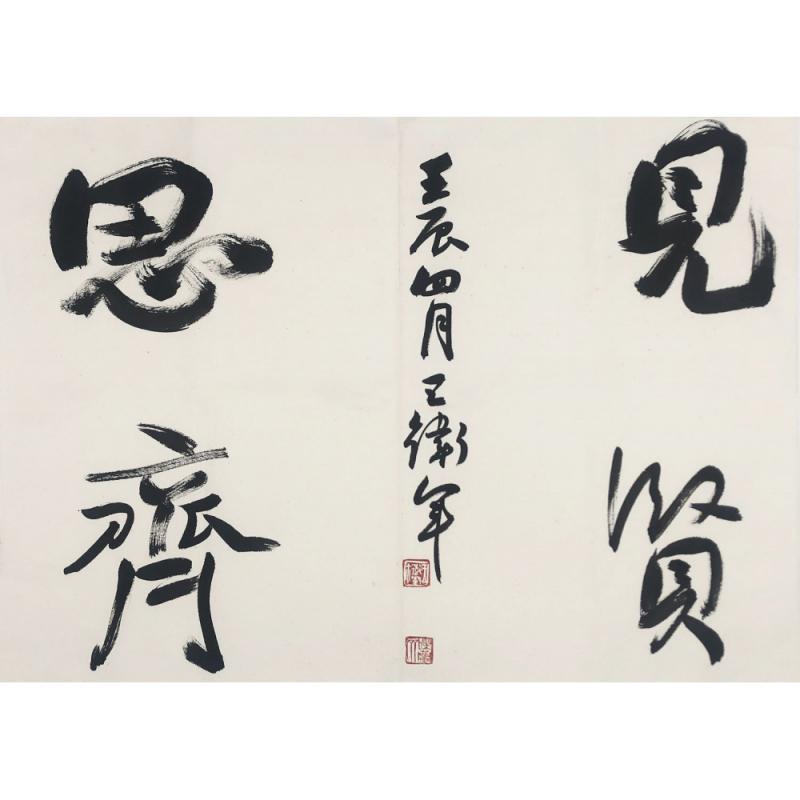 見賢
思齊
壬辰四月王衛軍